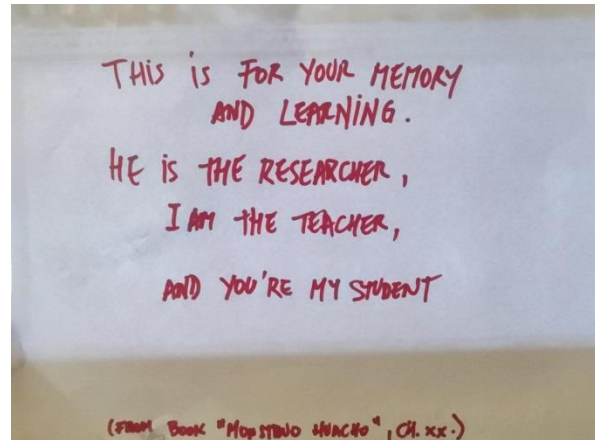 THIS IS FOR YOUR MEMORY
AND LEARNING.
HE IS THE RESEARCHER,
I AM THE TEACHER,
AND YOU'RE MY STUDENT
(FROM BOOK "MONSTRUO HUACHO", CH. XX.)